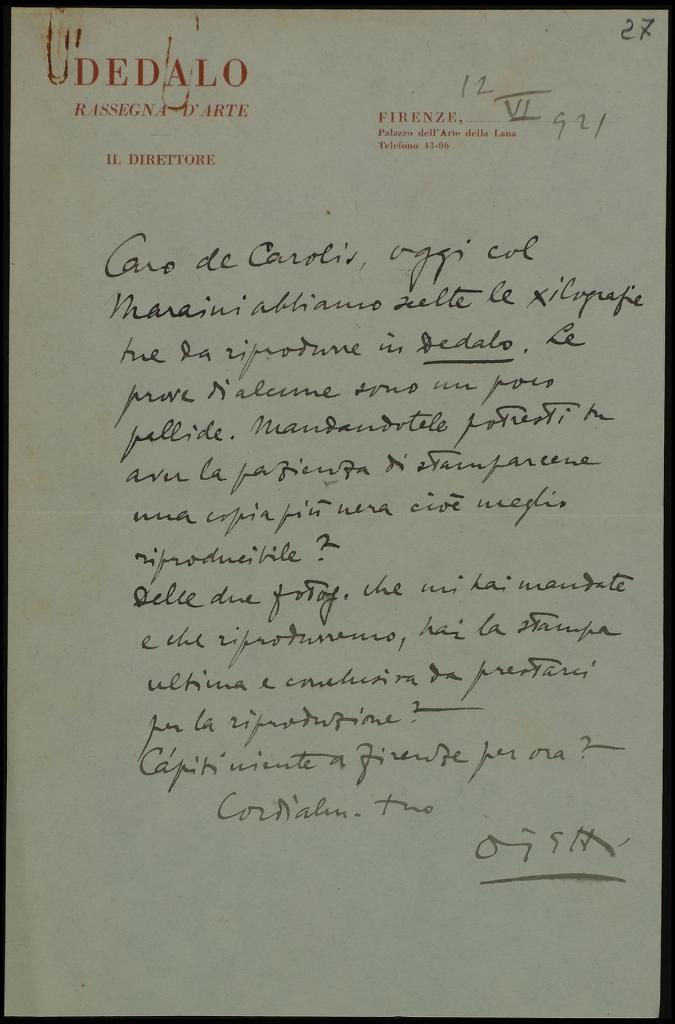 27
DEDALO
RASSEGNA D'ARTE
IL DIRETTORE
12 VI 921
FIRENZE,
Palazzo dell'Arte della Lana
Telefono 43-06
Caro de Carolis, oggi col
Maraini abbiamo scelte le xilografie
tue da riprodurre in Dedalo. Le
prove di alcune sono un poco
pallide. Mandandotele potresti tu
aver la pazienza di stamparcene
una copia più nera cioè meglio
riproducibile?
Delle due fotog. che mi hai mandate
e che riprodurremo, hai la stampa
ultima e conclusiva da prestarci
per la riproduzione?
Càpiti niente a Firenze per ora?
Cordialm. tuo
Ojetti